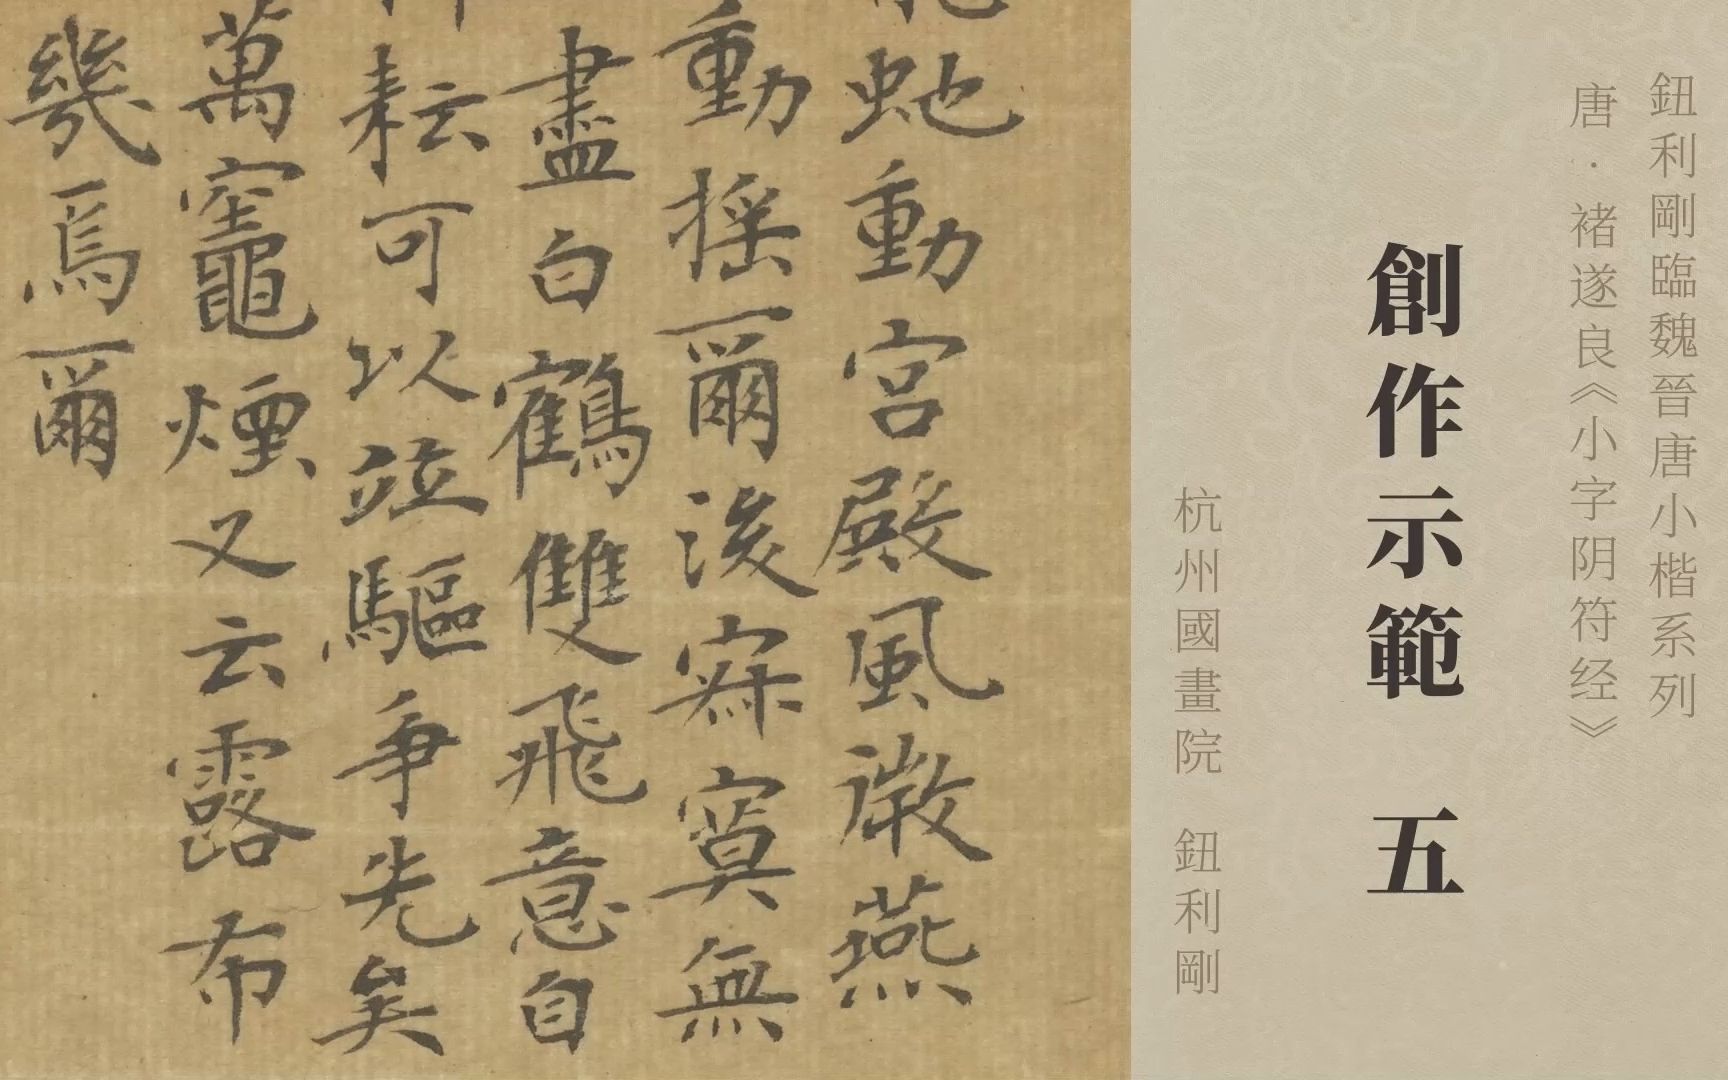 鈕利剛臨魏晉唐小楷系列
唐·褚遂良《小字阴符经》
創作示範 五
杭州國畫院 鈕利剛
虵動宮殿風微燕
動摇爾後寂寞無
盡白鶴雙飛意自
耘可以並驅爭先矣
萬竈煙又云露布
幾焉爾